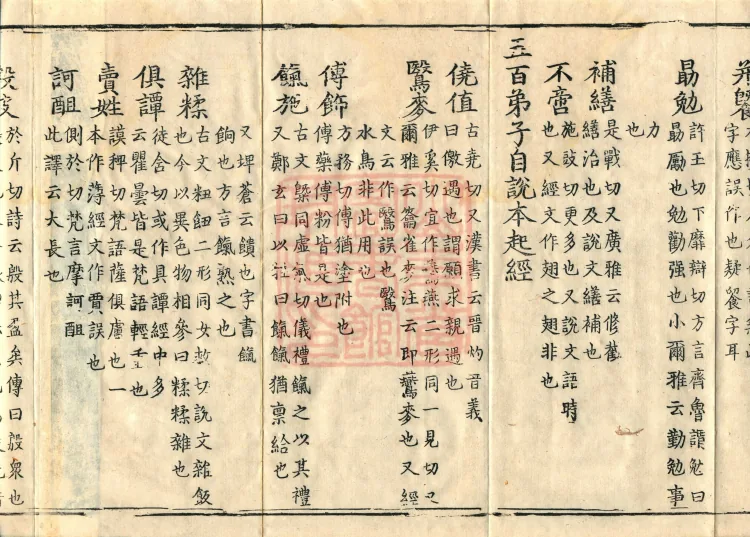 字應誤作也疑餐字耳
勗勉
許玉切下靡辯切方言齊魯謂勉曰
勗勵也勉勸強也小爾雅云勤勉事
力
也
補繕
是戰切又廣雅云修葺
繕治也及說文繕補也
不啻
施豉切更多也又說文語時
也又經文作翅之翅非也
五百弟子自說本起經
僥值
古堯切又漢書云晉灼音義
曰儌遇也謂願求親遇也
鷖麥
伊奚切宜作燕二形同一見切又
爾雅云籥雀麥注云即鷰麥也又經
文云作鷖誤也鷖
水鳥非此用也
傅飾
方務切傅猶塗附也
傅藥傅粉皆是也
餼施
古文槩同虛氣切儀禮餼之以其禮
又鄭玄曰以曰餼餼猶稟給也
又埤蒼云饋也字書餼
餉也方言餼熟之也
雜糅
古文粈二形同女救切說文雜飯
也今以異色物相參曰糅糅雜也
俱譚
徒含切或作具譚經中多
云瞿曇皆是梵語輕重也
賣姓
謨押切梵語薩俱盧也一
本作薄經文作賈誤也
訶䏣
側於切梵言摩訶䏣
此譯云大長也
於斤切詩云殷其盈矣傳曰殷衆也